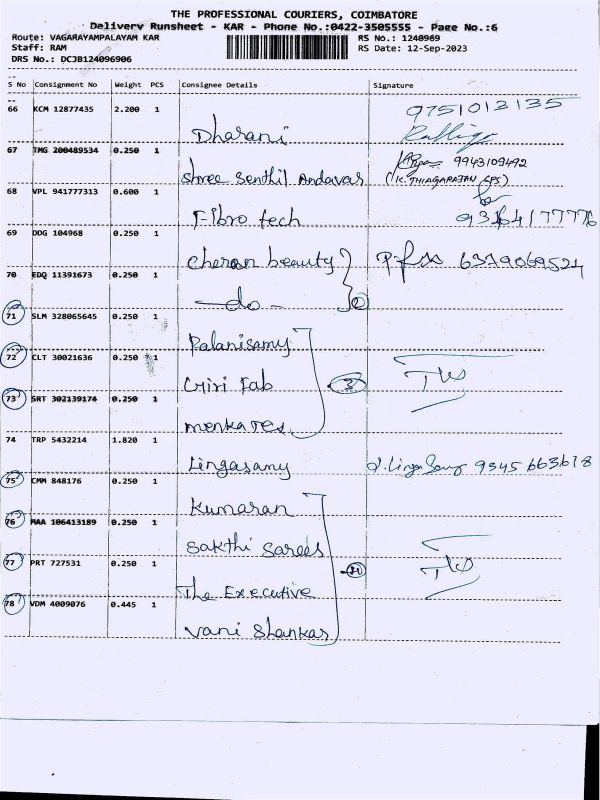 THE PROFESSIONAL COURIERS, COIMBATORE
Delivery Runsheet - KAR - Phone No.:0422-3505555 - Page No.:6
Route: VAGARAYAMPALAYAM KAR RS No.: 1240969
Staff: RAM RS Date: 12-Sep-2023
DRS No.: DCJB124096906
S No Consignment No Weight PCS Consignee Details Signature
66 KCM 12877435 2.200 1 Dharani 9751013135
67 TMG 200489534 0.250 1 Shree Senthil Andavar 9943109492
(K. THIAGARAJAN
68 VPL 941777313 0.600 1 Fibro tech
69 DDG 104968 0.250 1 Cheran beauty 6379069521
70 EDQ 11391673 0.250 1 —do— 2
71 SLM 328065645 0.250 1 Palanisamy
72 CLT 30021636 0.250 1 Giri Fab 3
73 SRT 302139174 0.250 1 Menka Tes.
74 TRP 5432214 1.820 1 Lingasamy 9345663618
75 CMM 848176 0.250 1 Kumaran
76 MAA 106413189 0.250 1 Sakthi Sarees
77 PRT 727531 0.250 1 The Executive
78 VDM 4009076 0.445 1 Vani Shankar